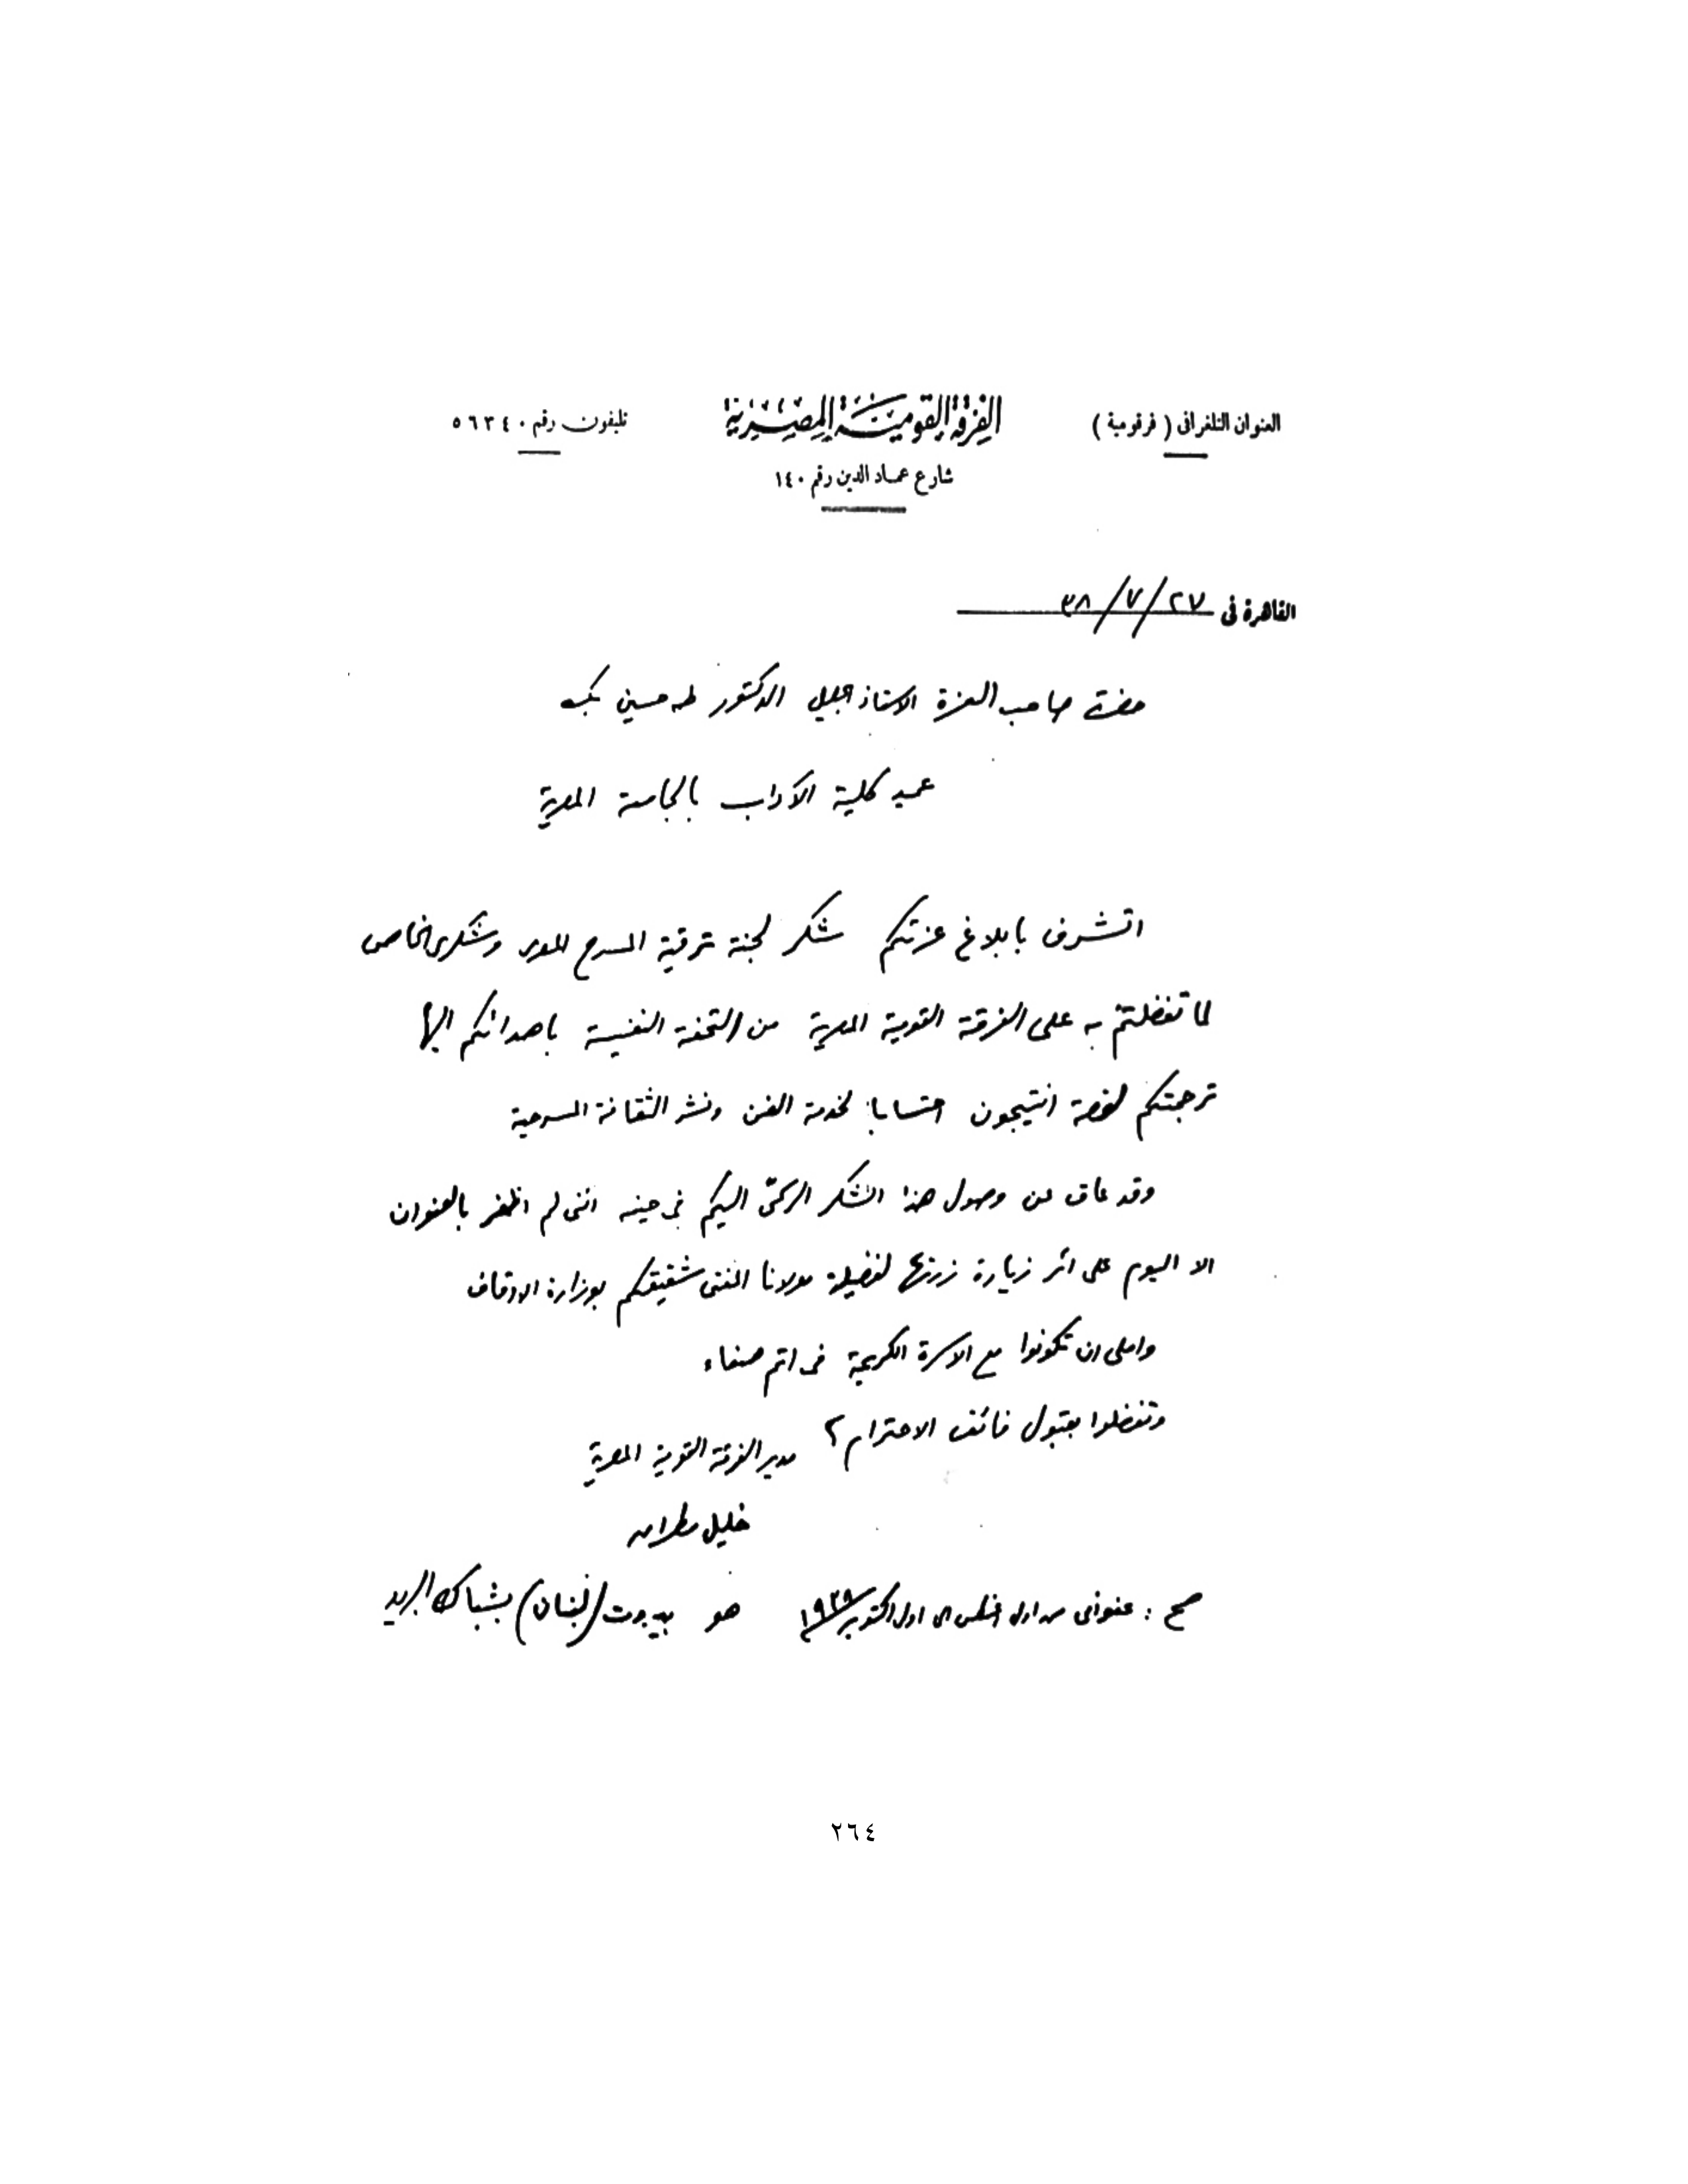 العنوان التلغرافى ( فرقومية )
الفرقة القومية المصرية
تليفون رقم ٥٦٣٤٠
شارع عماد الدين رقم ١٤٠
القاهرة فى ٢٧/٧/٣٨
حضرة صاحب العزة الاستاذ الجليل الدكتور طه حسين بك
عميد كلية الآداب بالجامعة المصرية
اتشرف بابلاغ عزتكم شكر لجنة ترقية المسرح المصرى وشكرى الخاص
لما تفضلتم به على الفرقة القومية المصرية من التحفة النفيسة باهدائكم اليها
ترجمتكم لقصة انتيجون احتسابا لخدمة الفن ونشر الثقافة المسرحية
وقد عاق عن وصول هذا الشكر اليكم فى حينه اننى لم اظفر بالعنوان
الا اليوم على اثر زيارة زرتها لفضيلة مولانا المفتى شقيقكم بوزارة الاوقاف
واملى ان تكونوا مع الاسرة الكريمة فى اتم صفاء
وتفضلوا بقبول فائق الاحترام
مدير الفرقة القومية المصرية
خليل مطران
صح : عنوانى من اول اغسطس الى اول اكتوبر هو بيروت (لبنان) بشباك البريد
٢٦٤